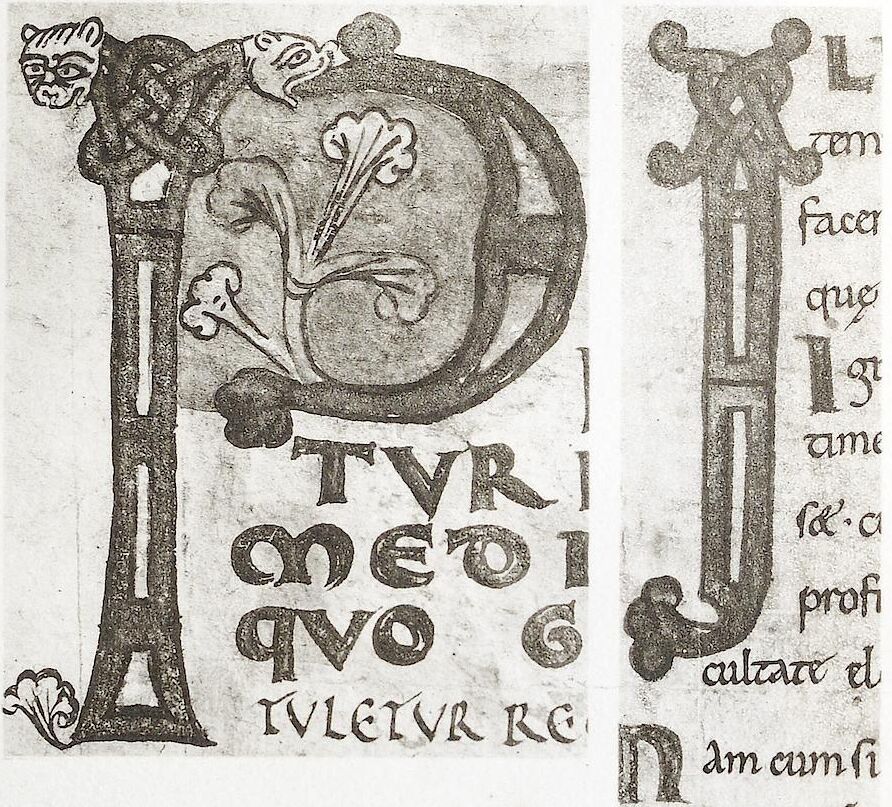 P
TVR
MED I
QVO G
TVLETVR RE
I L
tem
facer
quę
I gr
time
ſ&· c
profi
cultate el
N am cum si